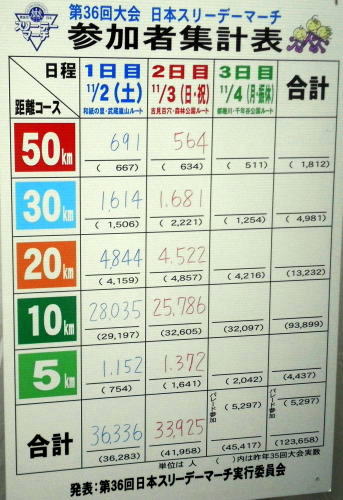 第36回大会 日本スリーデーマーチ
スリーデーマーチ
参加者集計表
日程 1日目 2日目 3日目 合計
11/2(土) 11/3(日・祝) 11/4(月・振休)
距離コース 和紙の里・武蔵嵐山ルート 吉見百穴・森林公園ルート 都幾川・千年谷公園ルート
50km 691 564
(667) (634) (511) (1,812)
30km 1,614 1,681
(1,506) (2,221) (1,254) (4,981)
20km 4,844 4,522
(4,159) (4,857) (4,216) (13,232)
10km 28,035 25,786
(29,197) (32,605) (32,097) (93,899)
5km 1,152 1,372
(754) (1,641) (2,042) (4,437)
パレード参加 (5,297) パレード参加 (5,297)
合計 36,336 33,925
(36,283) (41,958) (45,417) (123,658)
単位は人 ( )内は昨年35回大会実数
発表:第36回日本スリーデーマーチ実行委員会